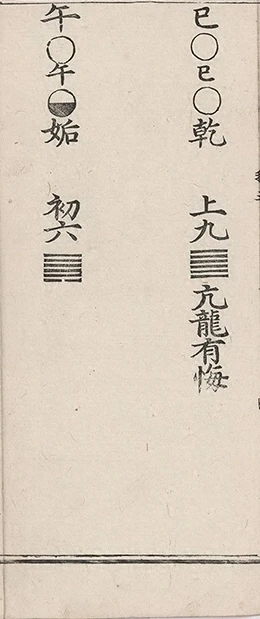 巳○巳○乾 上九䷀亢龍有悔
午○午◒姤 初六䷫